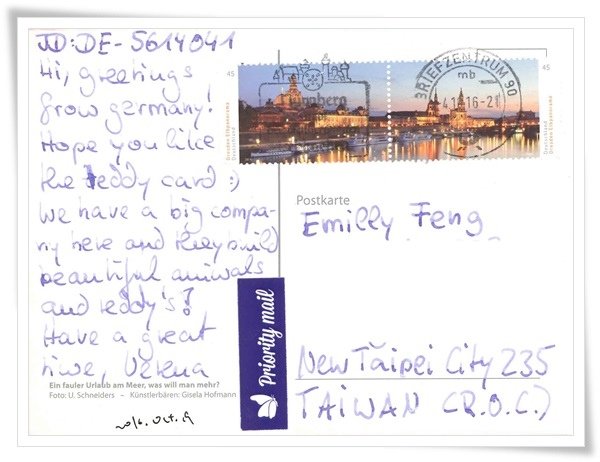 ID: DE-5614041
Hi, greetings
from germany!
Hope you like
the teddy card :)
We have a big compa-
ny here and they build
beautiful animals
and teddy's!
Have a great
time, Verena
Ein fauler Urlaub am Meer, was will man mehr?
Foto: U. Schneiders – Künstlerbären: Gisela Hofmann
2016.Oct.19
45
Dresden Elbpanorama
Deutschland
BRIEFZENTRUM 90
mb
16-21
45
Deutschland
Dresden Elbpanorama
Postkarte
Emilly Feng
Priority mail
New Taipei City 235
TAIWAN (R.O.C.)